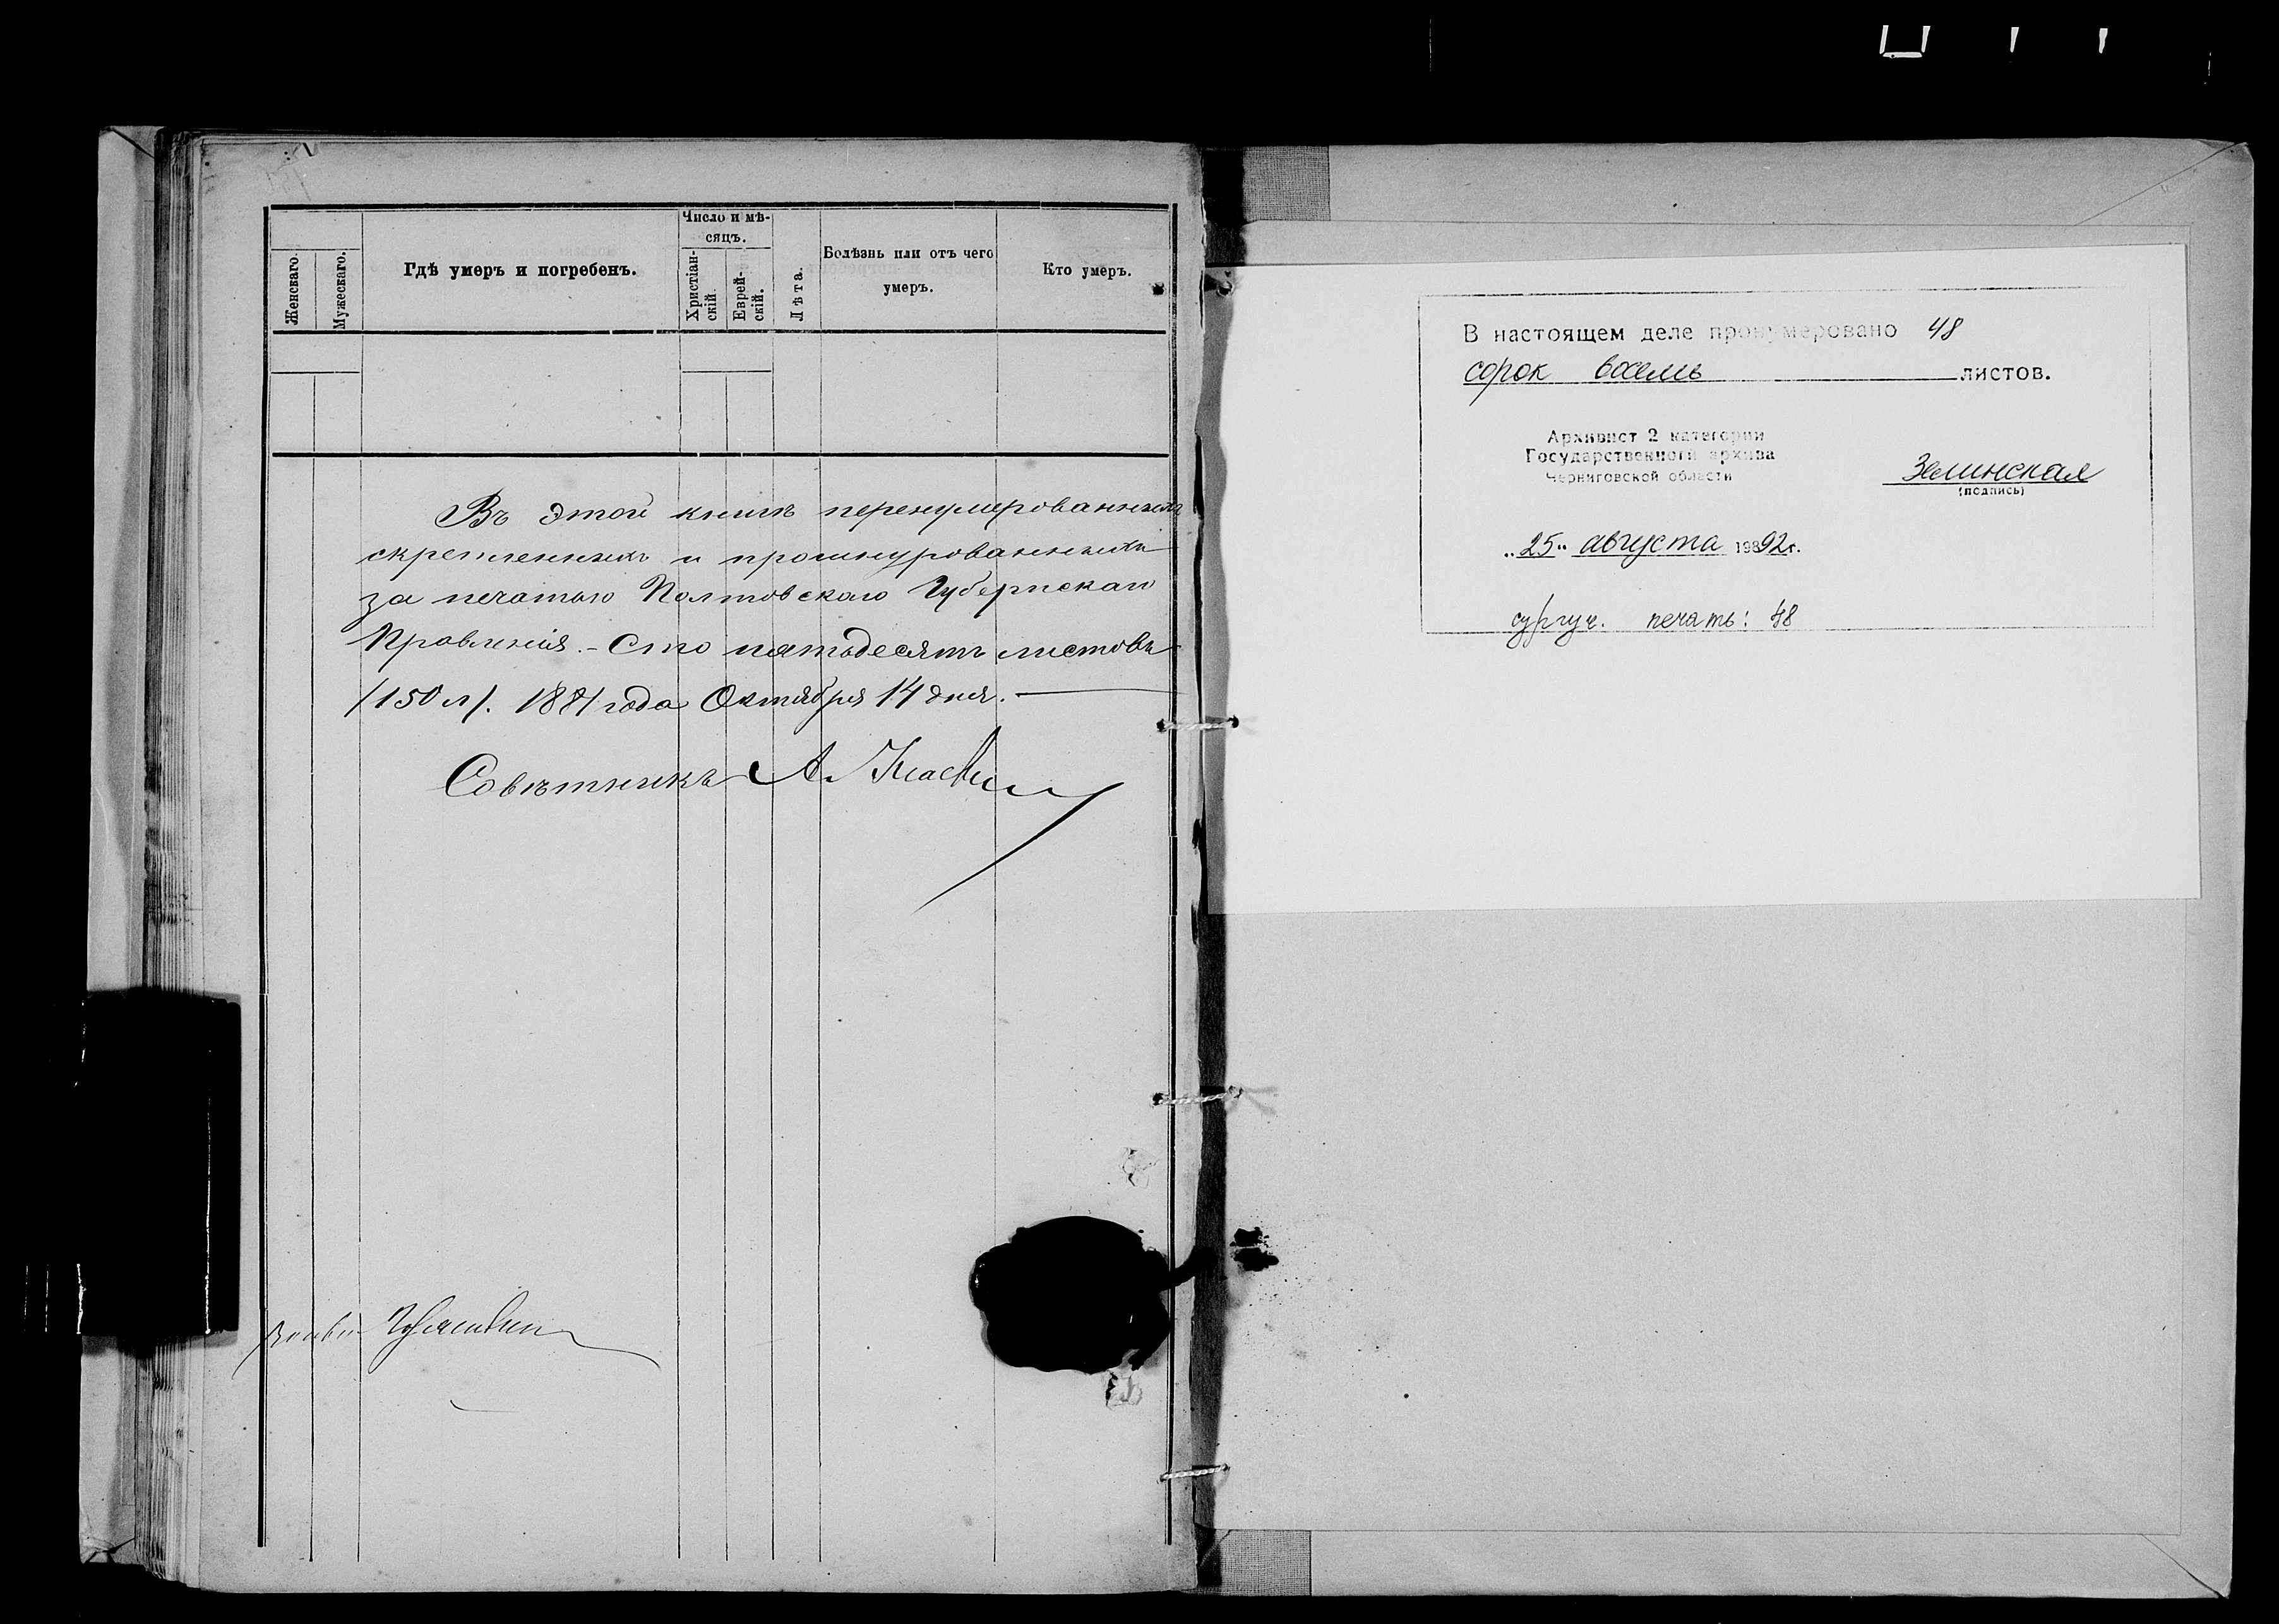 Женскаго.
Мужескаго.
Гдѣ умеръ и погребенъ.
Число и мѣ-
сяцъ.
Христіан-
скій.
Еврей-
скій.
Лѣта.
Болѣзнь или отъ чего
умеръ.
Кто умеръ.
Въ этой книгѣ перенумерованныхъ
скрепленныхъ и прошнурованныхъ
за печатью Полтовскаго Губернскаго
Правленія. - Сто пятьдесятъ листовъ
/150 л/. 1881 года Октября 14 дня.
Совѣтникъ А.
В настоящем деле пронумеровано 48
сорок восемь листов.
Архивист 2 категории
Государственного архива
Черниговской области
Зелинская
(подпись)
"25" августа 19892г.
сургуч. печать: 48